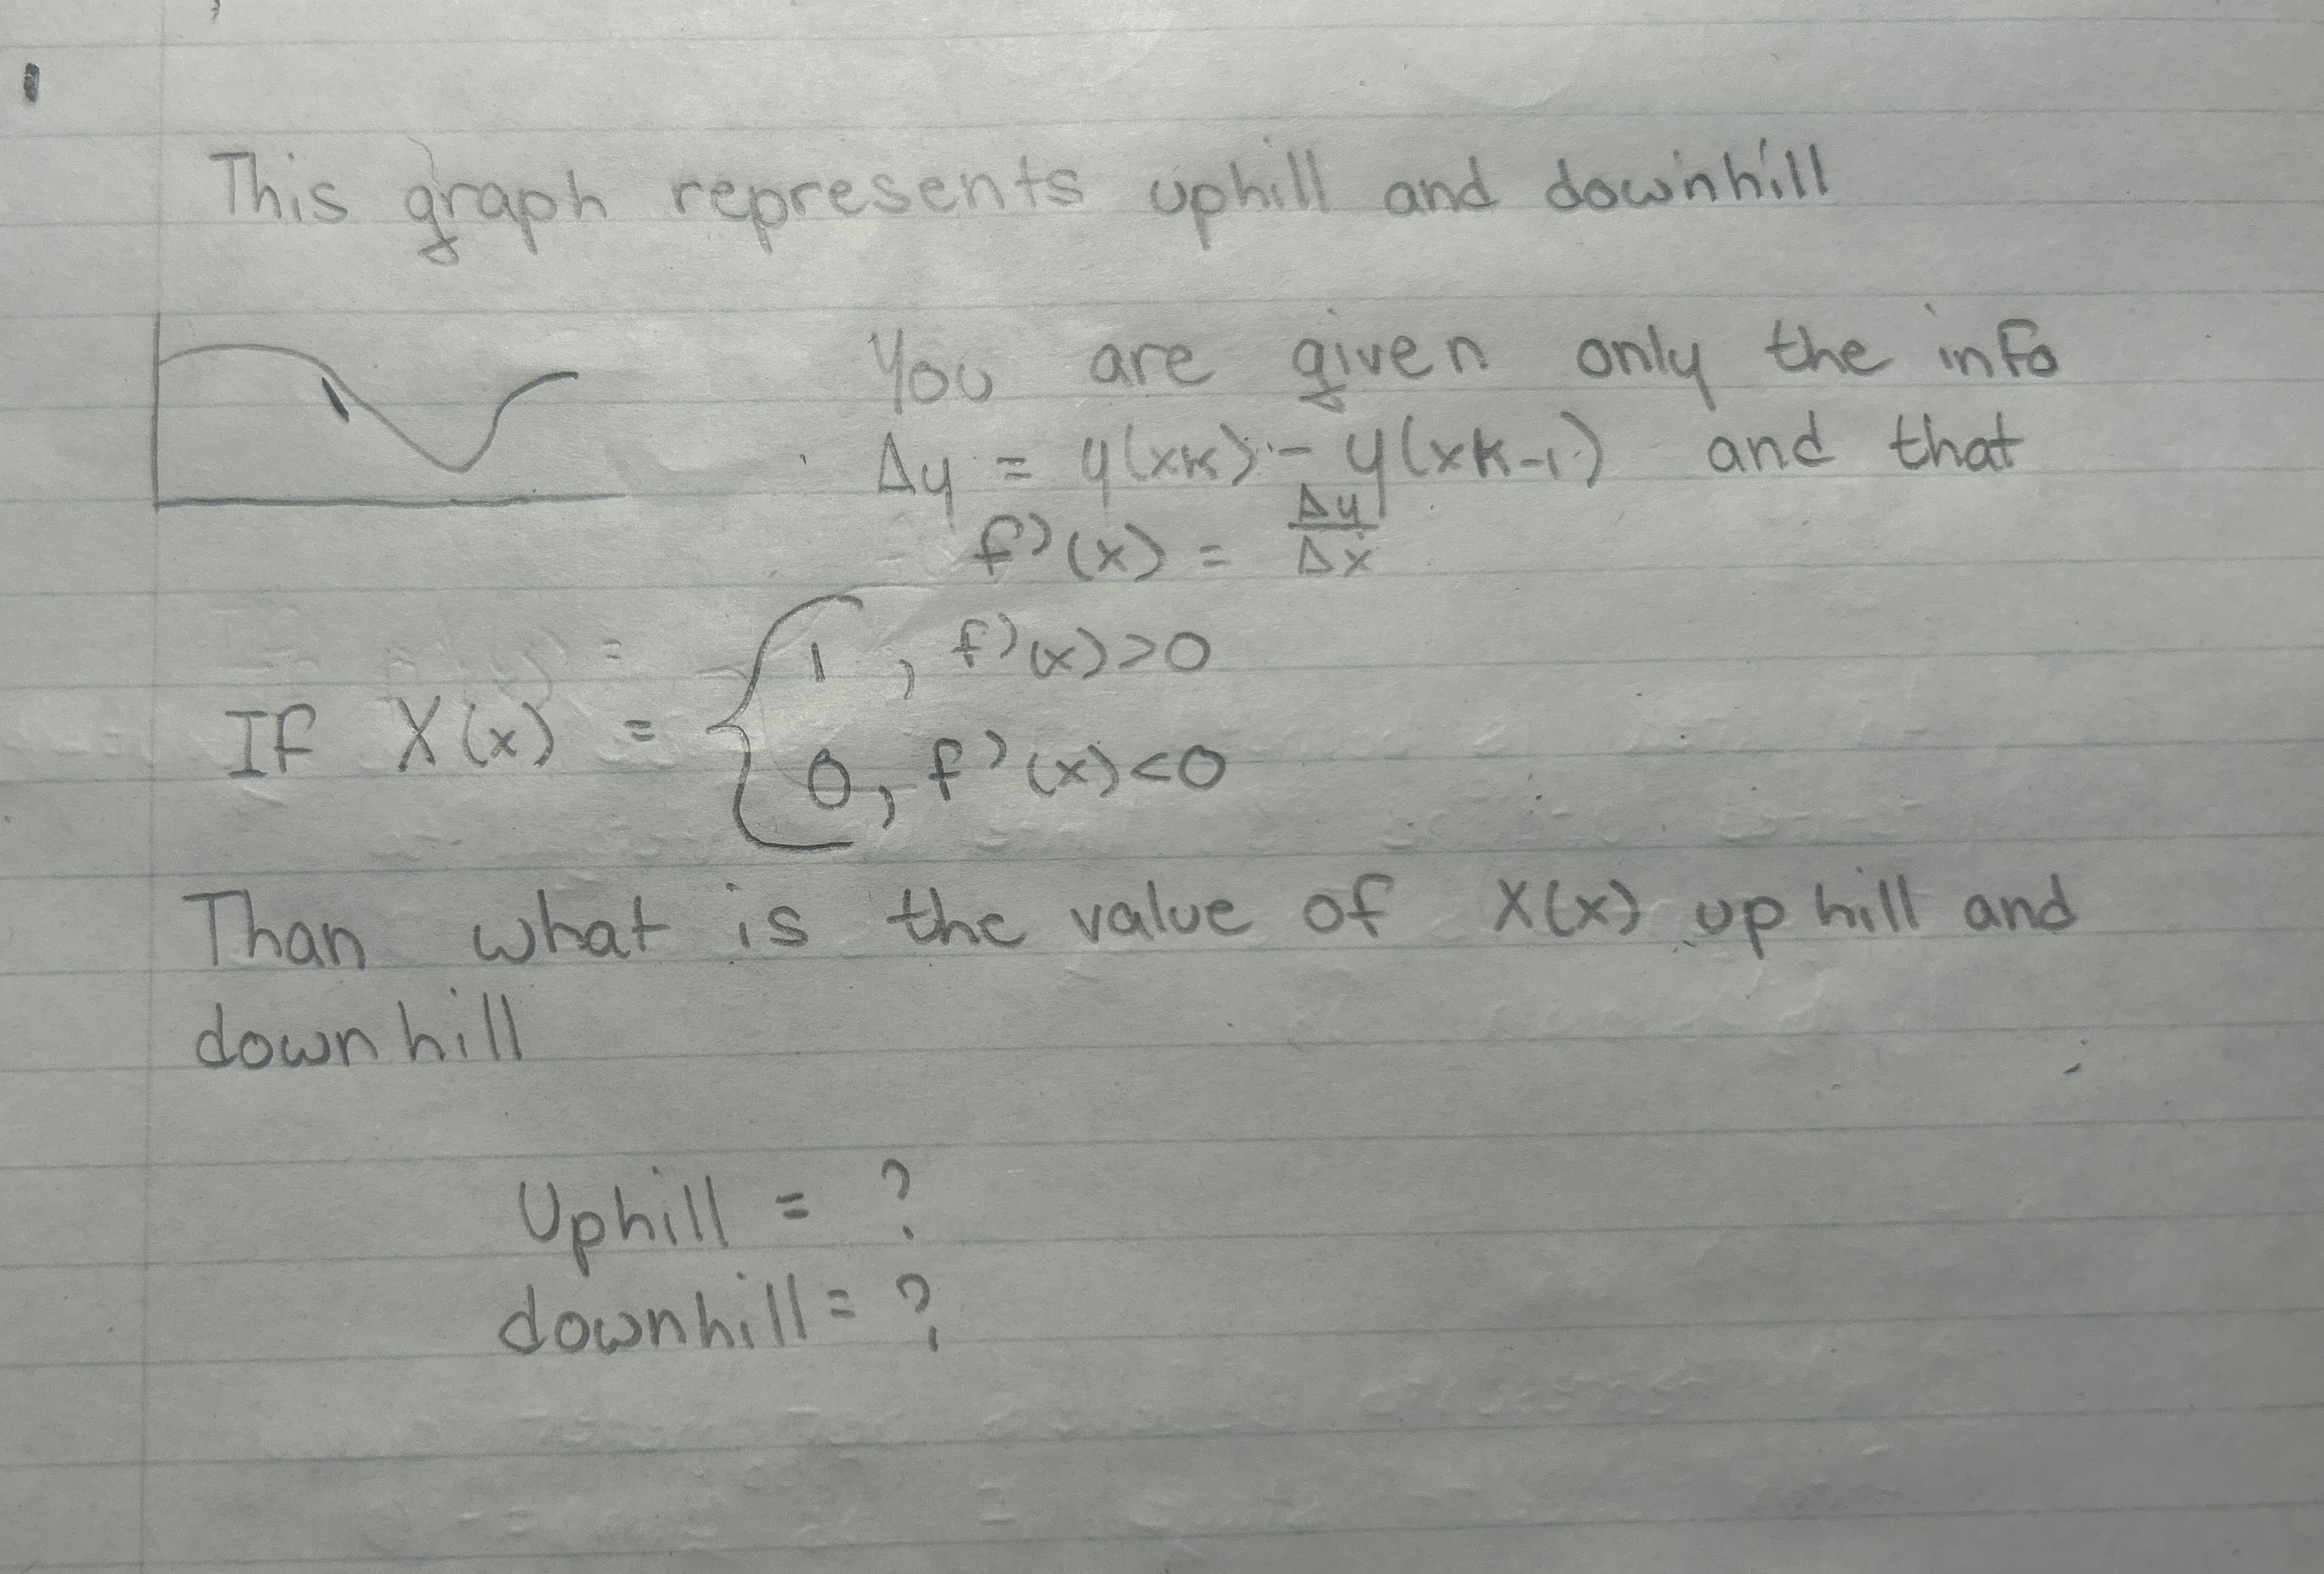 This graph represents uphill and downhill
You are given only the info
Δy = y(xk) - y(xk-1) and that
f'(x) = Δy/Δx
If X(x) = { 1, f'(x)>0
0, f'(x)<0
Than what is the value of X(x) up hill and
down hill
Uphill = ?
downhill = ?